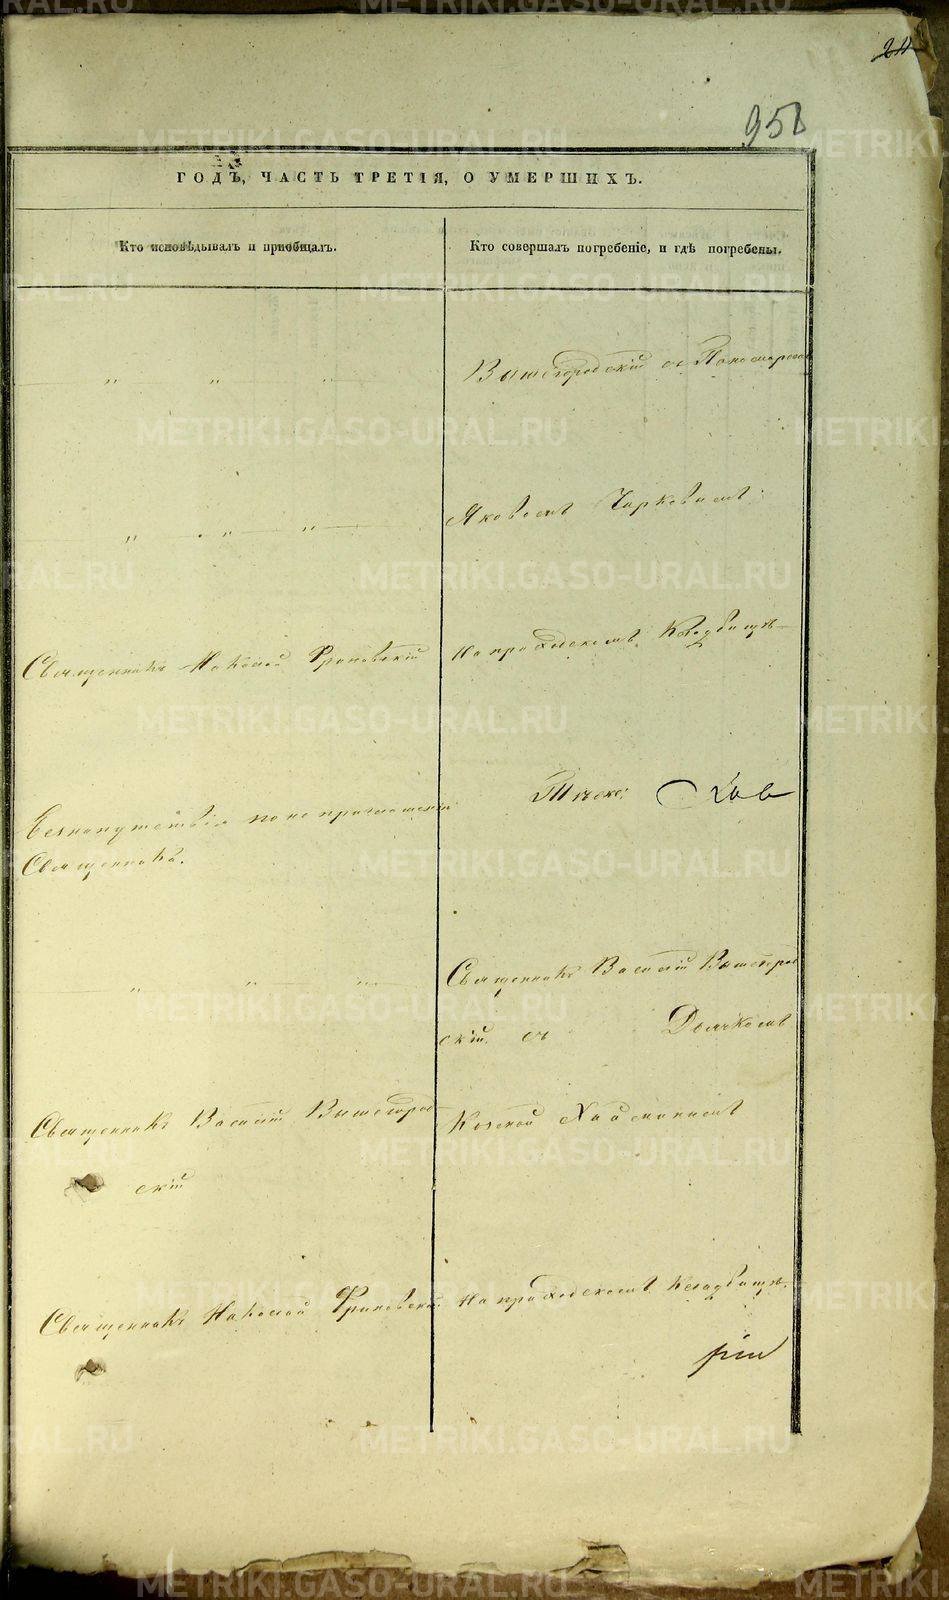 24
958
ГОДЪ, ЧАСТЬ ТРЕТІЯ, О УМЕРШИХЪ.
Кто исповѣдывалъ и пріобщалъ.
Кто совершалъ погребеніе, и гдѣ погребены.
" " "
Вышегородскій съ Пономаремъ
" " "
Яковомъ
Священникъ Николай Фраповскій
На приходскомъ кладбищѣ
Безнапутствія по не приглашенію
Священника.
" " "
Священникъ Василій Вышегород
скій съ Дьячкомъ
Священникъ Василій Вышегород
скій
Козмой
Священникъ Николай Фраповскій
На приходскомъ кладбищѣ.
METRIKI.GASO-URAL.RU